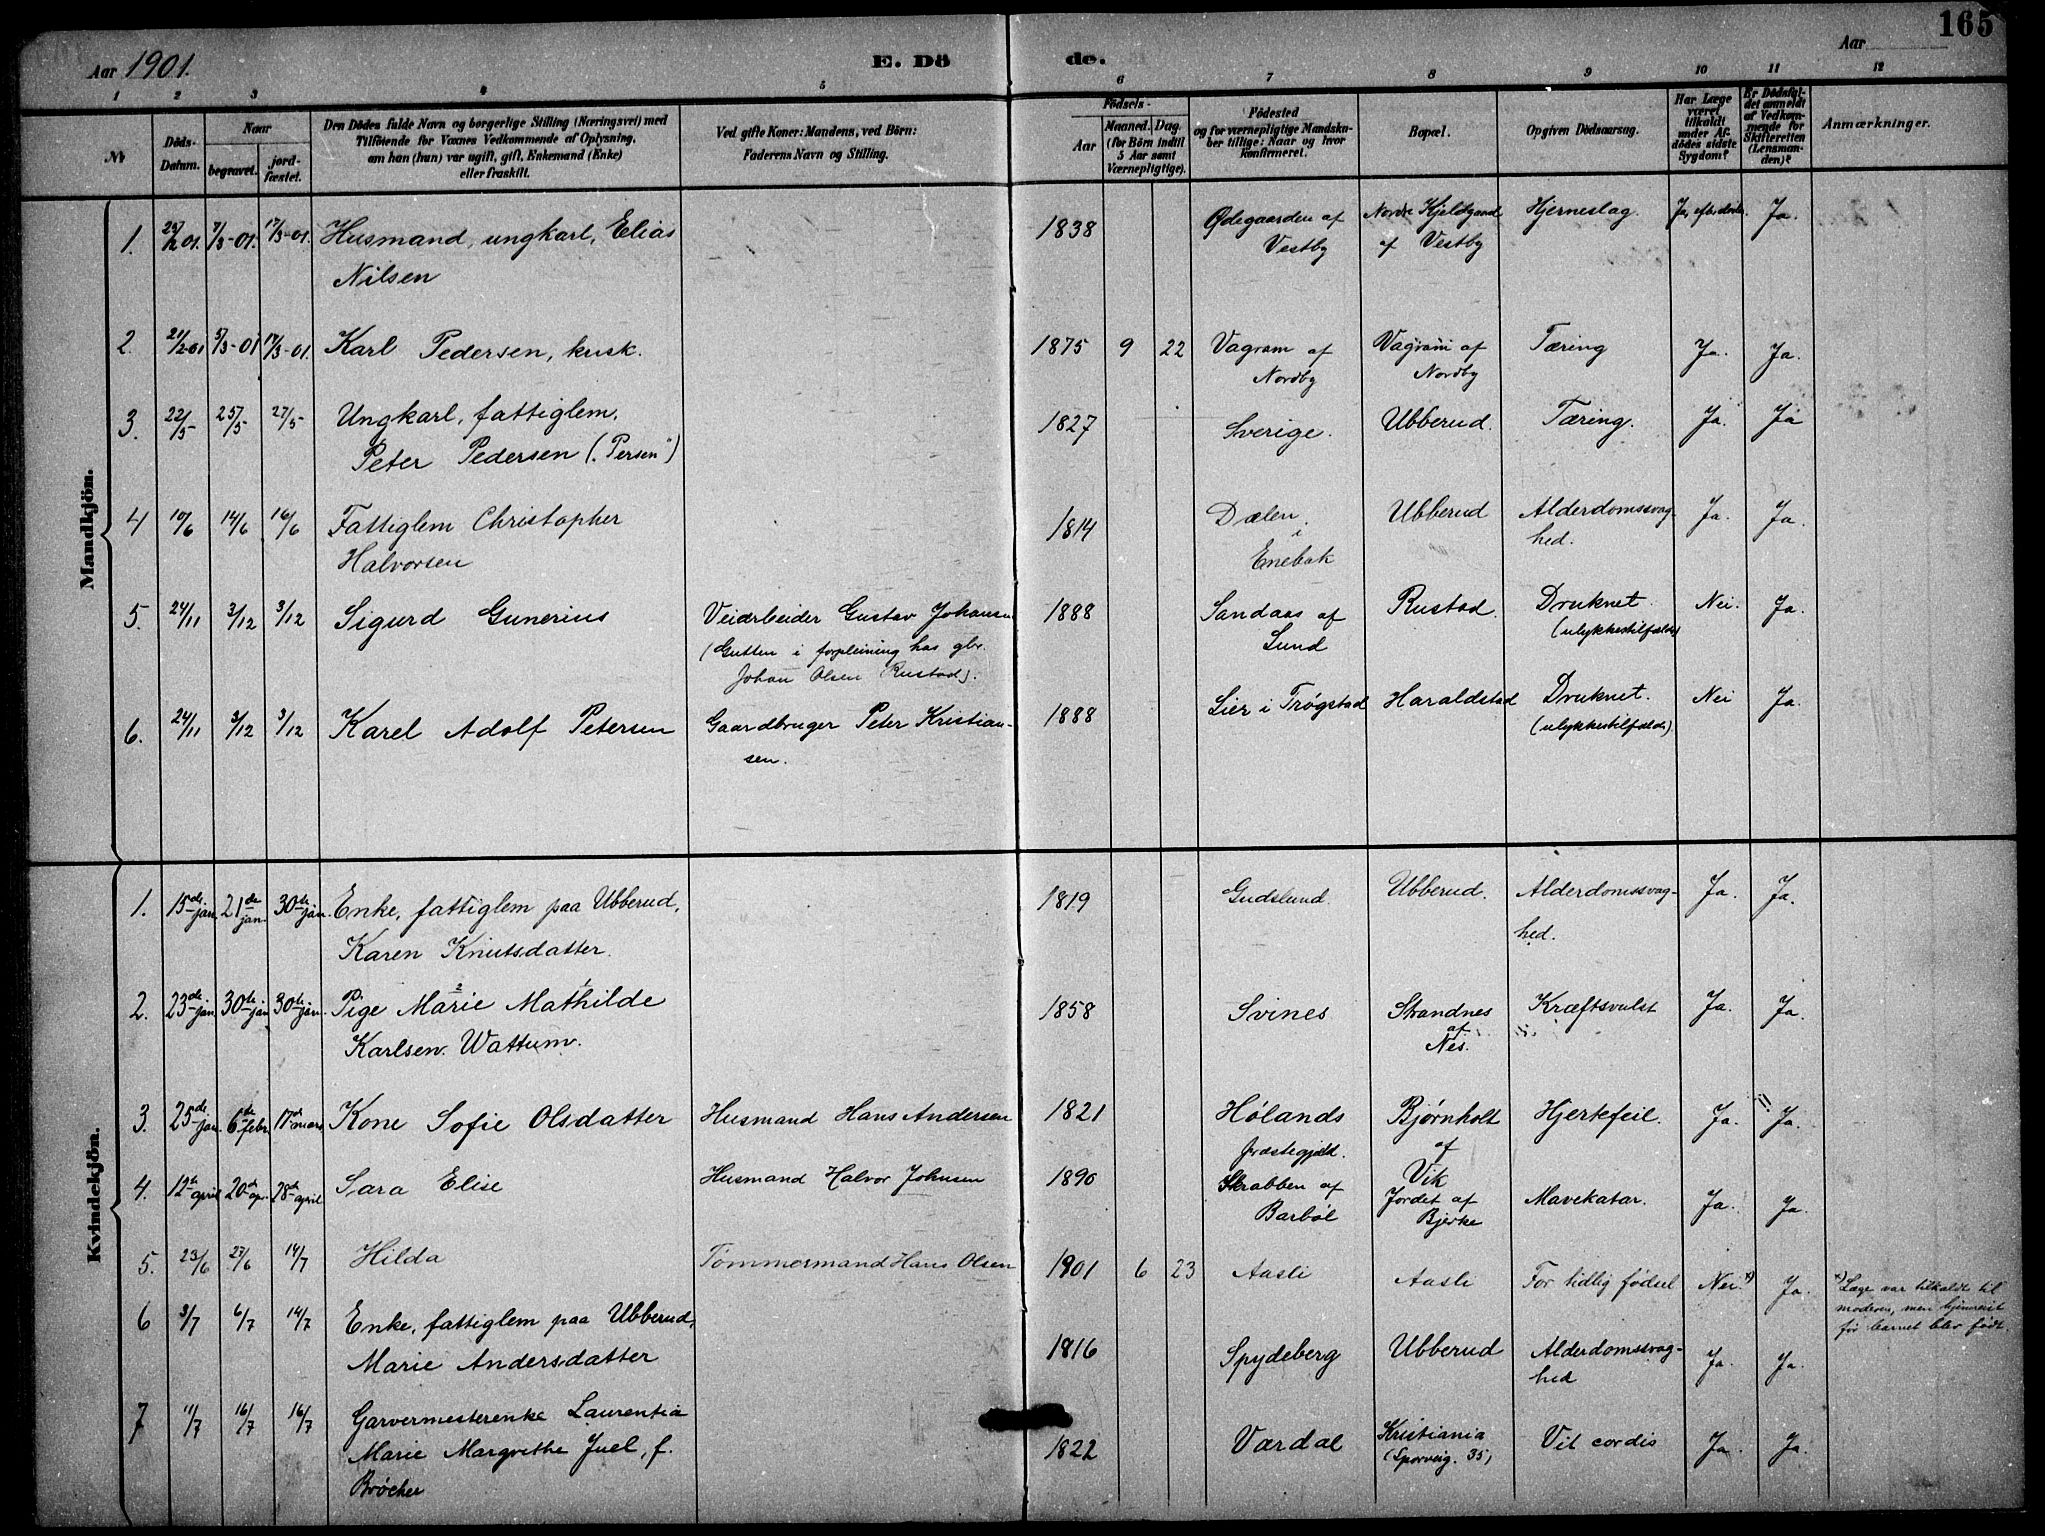 165
Aar 1901.
E. Dö
de.
Aar
1 2 3 4 5 6 7 8 9 10 11 12
№
Döds-
Datum.
Naar
begravet.
jord-
fæstet.
Den Dödes fulde Navn og borgerlige Stilling (Næringsvei) med
Tilföiende for Voxnes Vedkommende af Oplysning,
om han (hun) var ugift, gift, Enkemand (Enke)
eller fraskilt.
Ved gifte Koner: Mandens, ved Börn:
Faderens Navn og Stilling.
Födsels-
Aar
Maaned. Dag.
(for Börn indtil
5 Aar samt
Værnepligtige).
Födested
og for værnepligtige Mandska-
ber tillige: Naar og hvor
konfirmeret.
Bopæl.
Opgiven Dödsaarsag.
Har Læge
været
tilkaldt
under Af-
dödes sidste
Sygdom?
Er Dödsfal-
det anmeldt
af Vedkom-
mende for
Skifteretten
(Lensman-
den)?
Anmærkninger.
Mandkjön.
1. 25/2 01. 7/3-01. 17/3-01. Husmand, ungkarl, Elias 1838 Ødegaarden af Nordre Hjerneslag. Ja.
Nilsen Vestby af Vestby
2. 21/2-01 5/3-01 17/3-01. Karl Pedersen, kusk. 1875 9 22 Vagram af Vagram af Tæring Ja. Ja.
Nordby Nordby
3. 22/5 25/5 27/5 Ungkarl, fattiglem, 1827 Sverige. Ubberud. Tæring. Ja. Ja
Peter Pedersen („Persen")
4 10/6 14/6 16/6 Fattiglem Christopher 1814 Dælen Ubberud Alderdomssvag- Ja. Ja.
Halvorsen i Enebak hed.
5. 24/11 3/12 3/12 Sigurd Gunerius Veiarbeider Gustav Johansen 1888 Sandaas af Rustad. Druknet. Nei. Ja.
(Gutten i forpleining hos gbr. Lund (ulykkestilfælde)
Johan Olsen Rustad).
6. 24/11 3/12 3/12 Karel Adolf Petersen Gaardbruger Peter Kristian- 1888 Lier i Trøgstad Haraldstad Druknet. Nei Ja.
sen. (ulykkestilfælde)
Kvindekjön.
1. 15de jan. 21de jan. 30te jan. Enke, fattiglem paa Ubberud, 1819 Gudslund. Ubberud. Alderdomssvag- Ja. Ja.
Karen Knutsdatter. hed.
2. 23de jan. 30te jan. 30te jan. Pige Marie Mathilde 1858 Svines Strandnes Kræftsvulst Ja. Ja.
Karlsen Wattum. af Nes.
3. 25de jan. 6te febr. 17de mars Kone Sofie Olsdatter Husmand Hans Andersen 1821 Hølands Bjørnholt Hjertefeil. Ja. Ja.
præstegjeld. af Vik
4. 12te april 20de apr. 28de april Sara Elise Husmand Halvor Johnsen 1890 Skrabben af Jordet af Mavekatar. Ja. Ja.
Barbøl Bjerke
5. 23/6 27/6 14/7 Hilda Tømmermand Hans Olsen 1901 6 23 Aasli Aasli For tidlig fødsel Nei.*) Ja. *) Læge var tilkaldt til
moderen, men hjemreist
før barnet blev født.
6 3/7 6/7 14/7 Enke, fattiglem paa Ubberud, 1816 Spydeberg Ubberud Alderdomssvag- Ja. Ja.
Marie Andersdatter hed
7 11/7 16/7 16/7 Garvermesterenke Laurentia 1822 Værdal Kristiania Vit cordis Ja. Ja.
Marie Margrethe Juel, f. (Sporveig. 35)
Brøcher